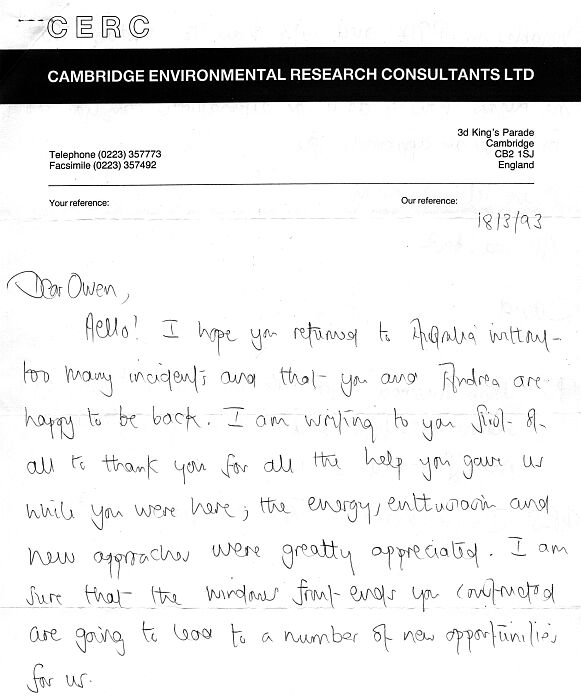 CERC
CAMBRIDGE ENVIRONMENTAL RESEARCH CONSULTANTS LTD
3d King's Parade
Cambridge
CB2 1SJ
England
Telephone (0223) 357773
Facsimile (0223) 357492
Your reference:
Our reference:
18/3/93
Dear Owen,
Hello! I hope you returned to Australia without
too many incidents and that you and Andrea are
happy to be back. I am writing to you first of
all to thank you for all the help you gave us
while you were here; the energy, enthusiasm and
new approaches were greatly appreciated. I am
sure that the windows front-ends you constructed
are going to lead to a number of new opportunities
for us.